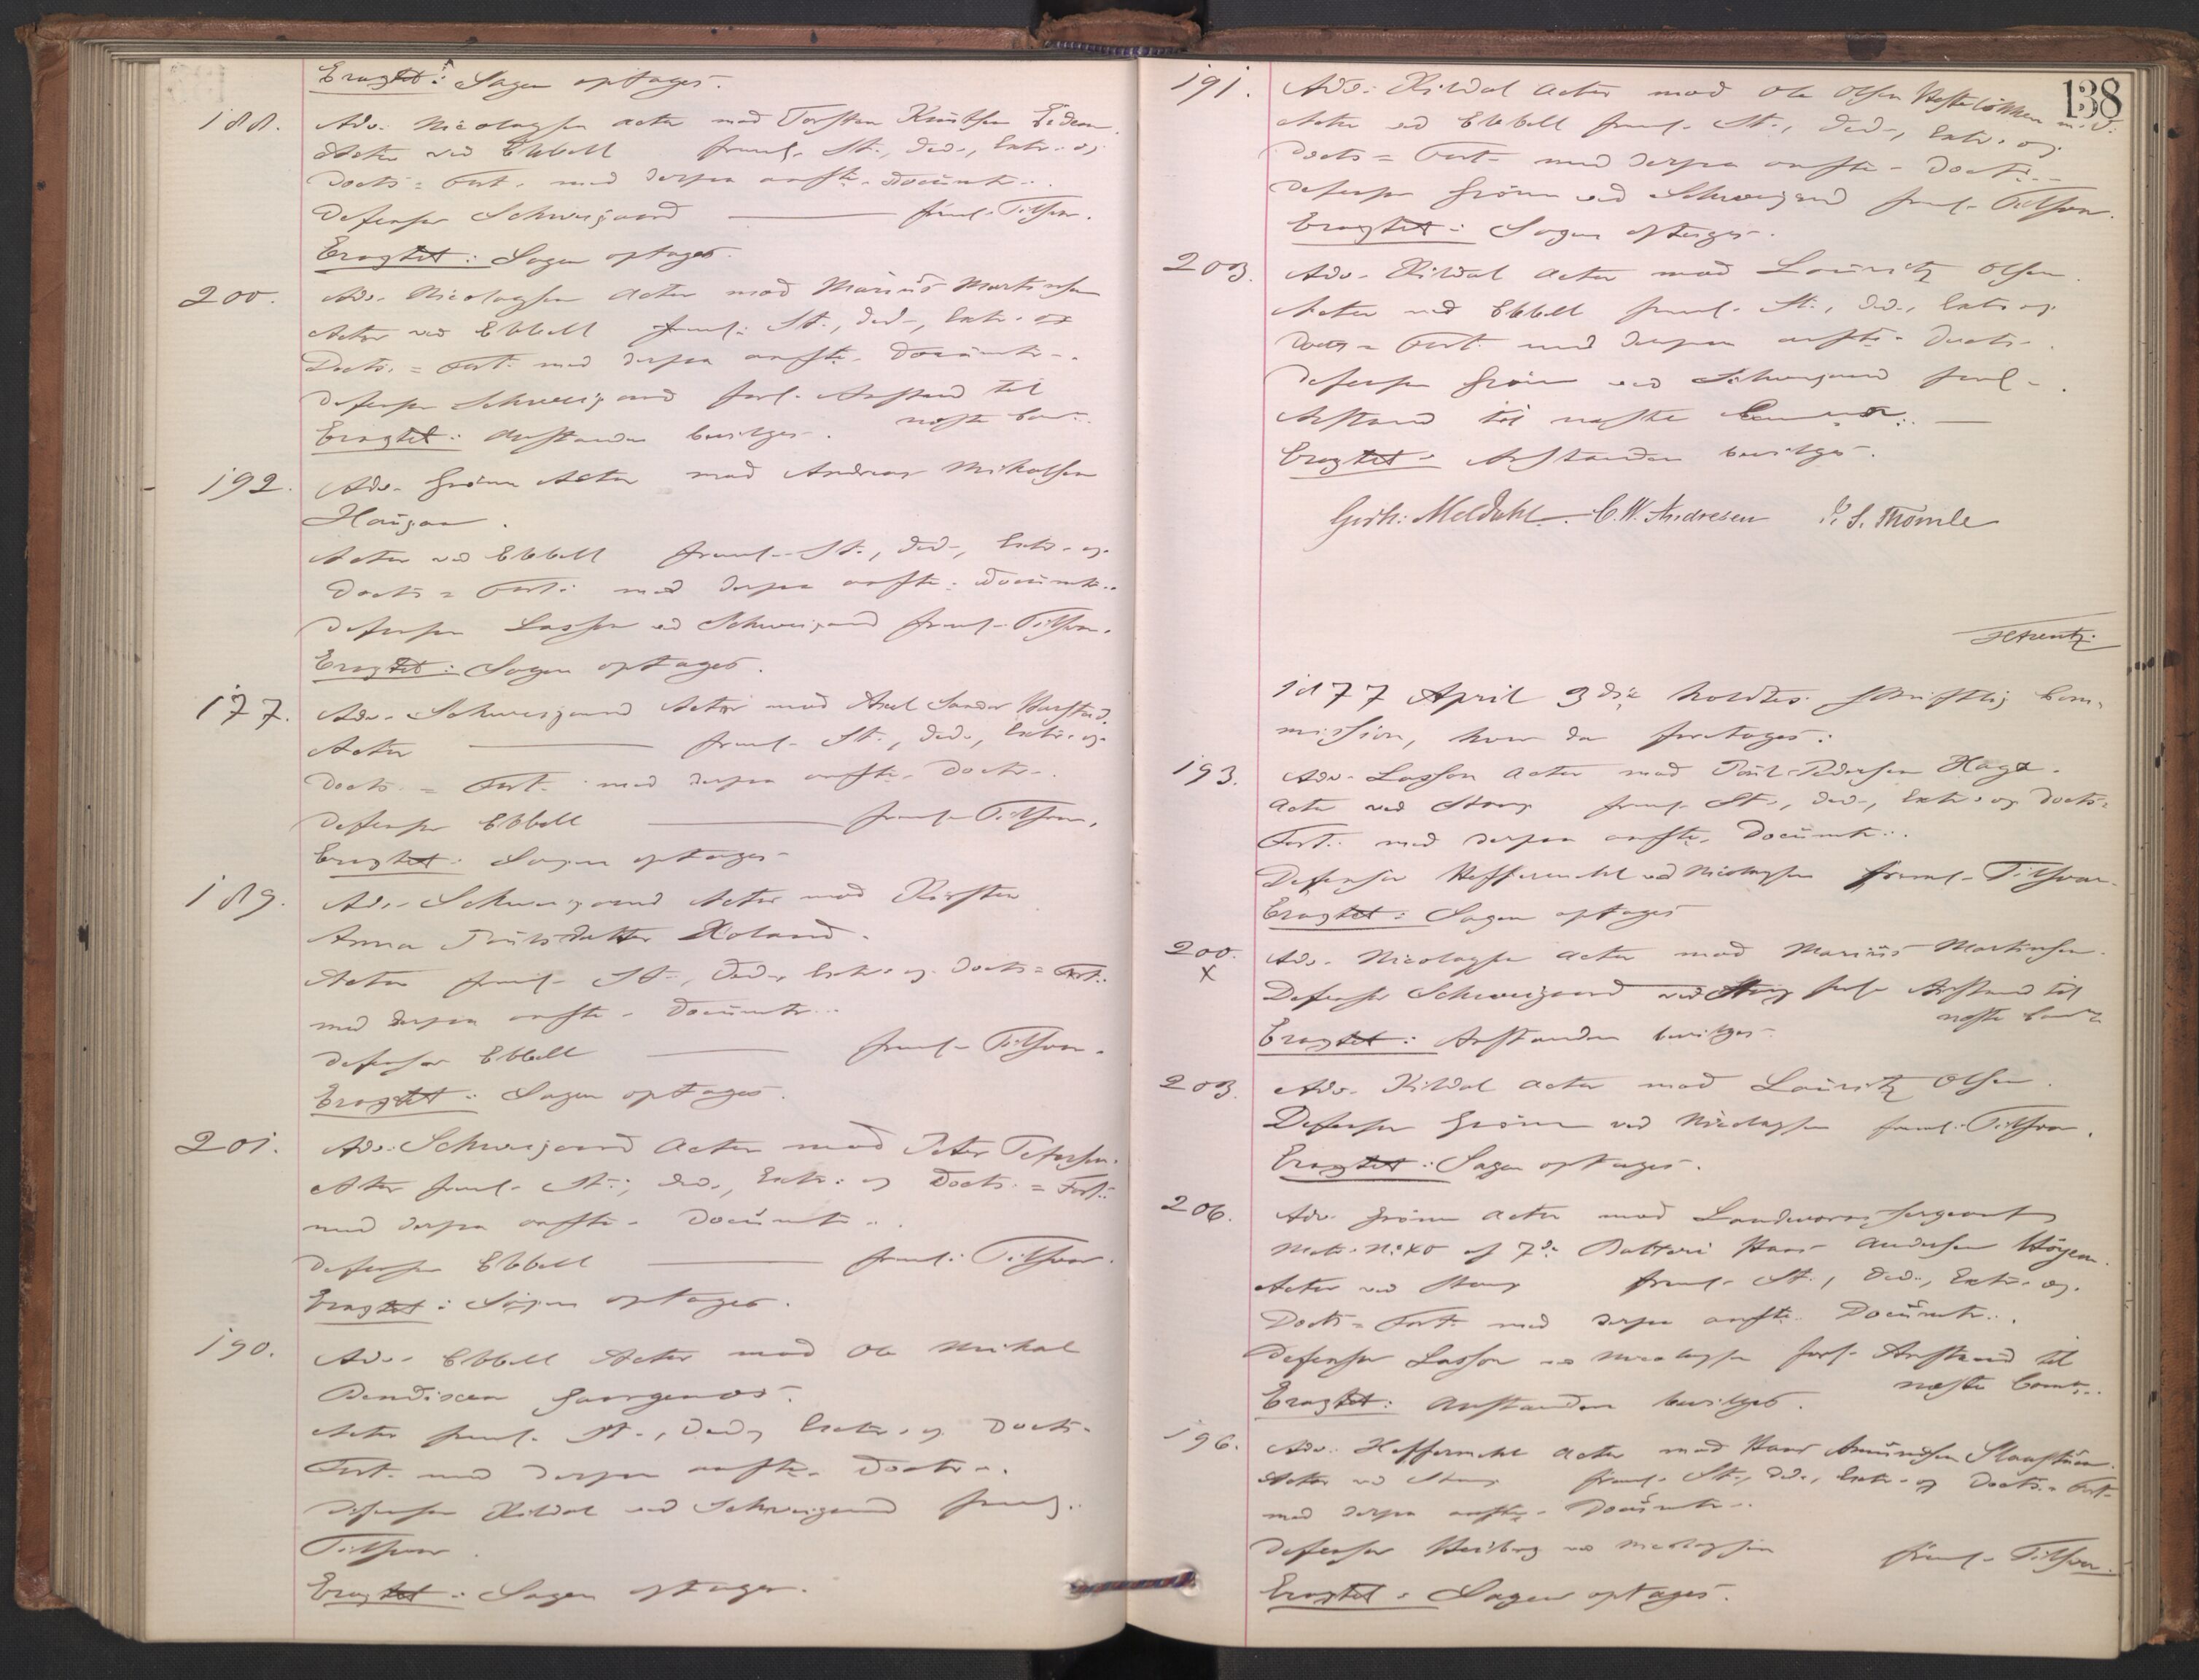 Eragtet: Sagen optages.
188. Adv. Nicolaysen Actor mod Torsten Knudsen Eidem.
Actor ved Ebbell freml. St., Ded., Extr. og
Docts = Fort. med derpaa anførte Documtr.
Defensor Schweigaard — freml. Tilsvar.
Eragtet: Sagen optages.
200. Adv. Nicolaysen Actor mod Marius Martinsen
Actor ved Ebbell freml. St., Ded., Extr. og
Docts. = Fort. med derpaa anførte Documtr.
Defensor Schweigaard forl. Anstand til
næste Com.
Eragtet: Anstanden bevilges.
192. Adv. Grönn Actor mod Andreas Mikalsen
Haugan.
Actor ved Ebbell freml. St., Ded., Extr. og
Docts = Fort. med derpaa anførte Documtr.
Defensor Lasson ved Schweigaard freml. Tilsvar.
Eragtet: Sagen optages.
177. Adv. Schweigaard Actor mod Axel Sandor Harstad.
Actor — freml. St., Ded., Extr. og
Docts. = Fort. med derpaa anførte Doctr.
Defensor Ebbell — freml. Tilsvar.
Eragtet: Sagen optages.
189. Adv. Schweigaard Actor mod Kirsten
Anna Poulsdatter Holand.
Actor freml. St., Ded., Extr. og Docts = Fort.
med derpaa anførte Documtr.
Defensor Ebbell — freml. Tilsvar.
Eragtet: Sagen optages.
201. Adv. Schweigaard Actor mod Peter Petersen.
Actor freml. St., Ded., Extr. og Docts. = Fort.
med derpaa anførte Documtr.
Defensor Ebbell — freml. Tilsvar.
Eragtet: Sagen optages.
190. Adv. Ebbell Actor mod Ole Mikal
Bendixen
Actor freml. St., Ded., Extr. og Docts.
Fort. med derpaa anførte Doctr.
Defensor Kildal ved Schweigaard freml.
Tilsvar.
Eragtet: Sagen optages.
138
191. Adv. Kildal Actor mod Ole Olsen Hestelökken m. v.
Actor ved Ebbell freml. St., Ded., Extr. og
Docts = Fort. med derpaa anførte Doctr.
Defensor Grönn ved Schweigaard freml. Tilsvar.
Eragtet: Sagen optages.
203. Adv. Kildal Actor mod Lauritz Olsen.
Actor ved Ebbell freml. St., Ded., Extr. og
Docts = Fort. med derpaa anførte Doctr.
Defensor Grönn ved Schweigaard forl.
Anstand til næste —
Eragtet: Anstanden bevilges.
Gerh. Meldahl. C. W. Andresen P. S. Thomle
HArentz
1877 April 3die holdtes skriftlig Com-
mission, hvor da foretages:
193. Adv. Lasson Actor mod Poul Pedersen Haga.
Actor ved Stang freml. St., Ded., Extr. og Docts =
Fort. med derpaa anførte Documtr.
Defensor Heffermehl ved Nicolaysen freml. Tilsvar.
Eragtet: Sagen optages
200. Adv. Nicolaysen Actor mod Marius Martinsen.
x Defensor Schweigaard ved Stang forl. Anstand til
næste Com.
Eragtet: Anstanden bevilges.
203. Adv. Kildal Actor mod Lauritz Olsen.
Defensor Grönn ved Nicolaysen freml. Tilsvar.
Eragtet: Sagen optages.
206. Adv. Grönn Actor mod Landværnssergeant
Matr. No 40 af 7de Batteri Hans Andersen Högen.
Actor ved Stang freml. St., Ded., Extr. og
Docts = Fort. med derpaa anførte Documtr.
Defensor Lasson ved Nicolaysen forl. Anstand til
næste Com.
Eragtet: Anstanden bevilges.
196. Adv. Heffermehl Actor mod Hans Amundsen
Actor ved Stang freml. St., Ded., Extr. og Docts = Fort.
med derpaa anførte Documtr.
Defensor Heiberg ved Nicolaysen freml. Tilsvar.
Eragtet: Sagen optages.